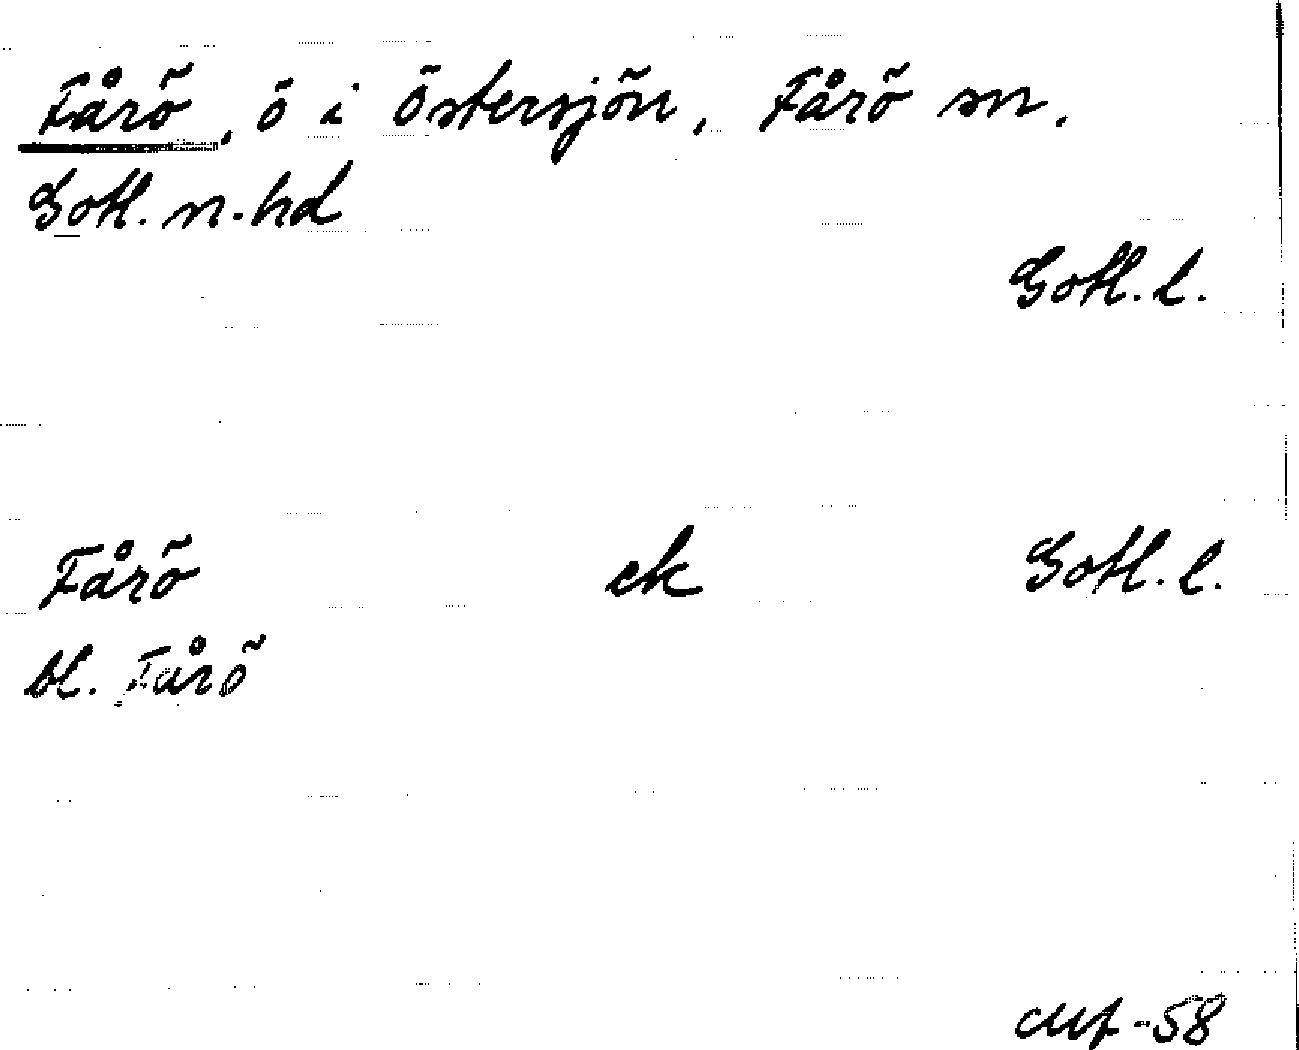 Fårö, ö i Östersjön, Fårö sn.
Gotl. n. hd
Gotl. l.
Fårö ek Gotl. l.
bl. Fårö
-58